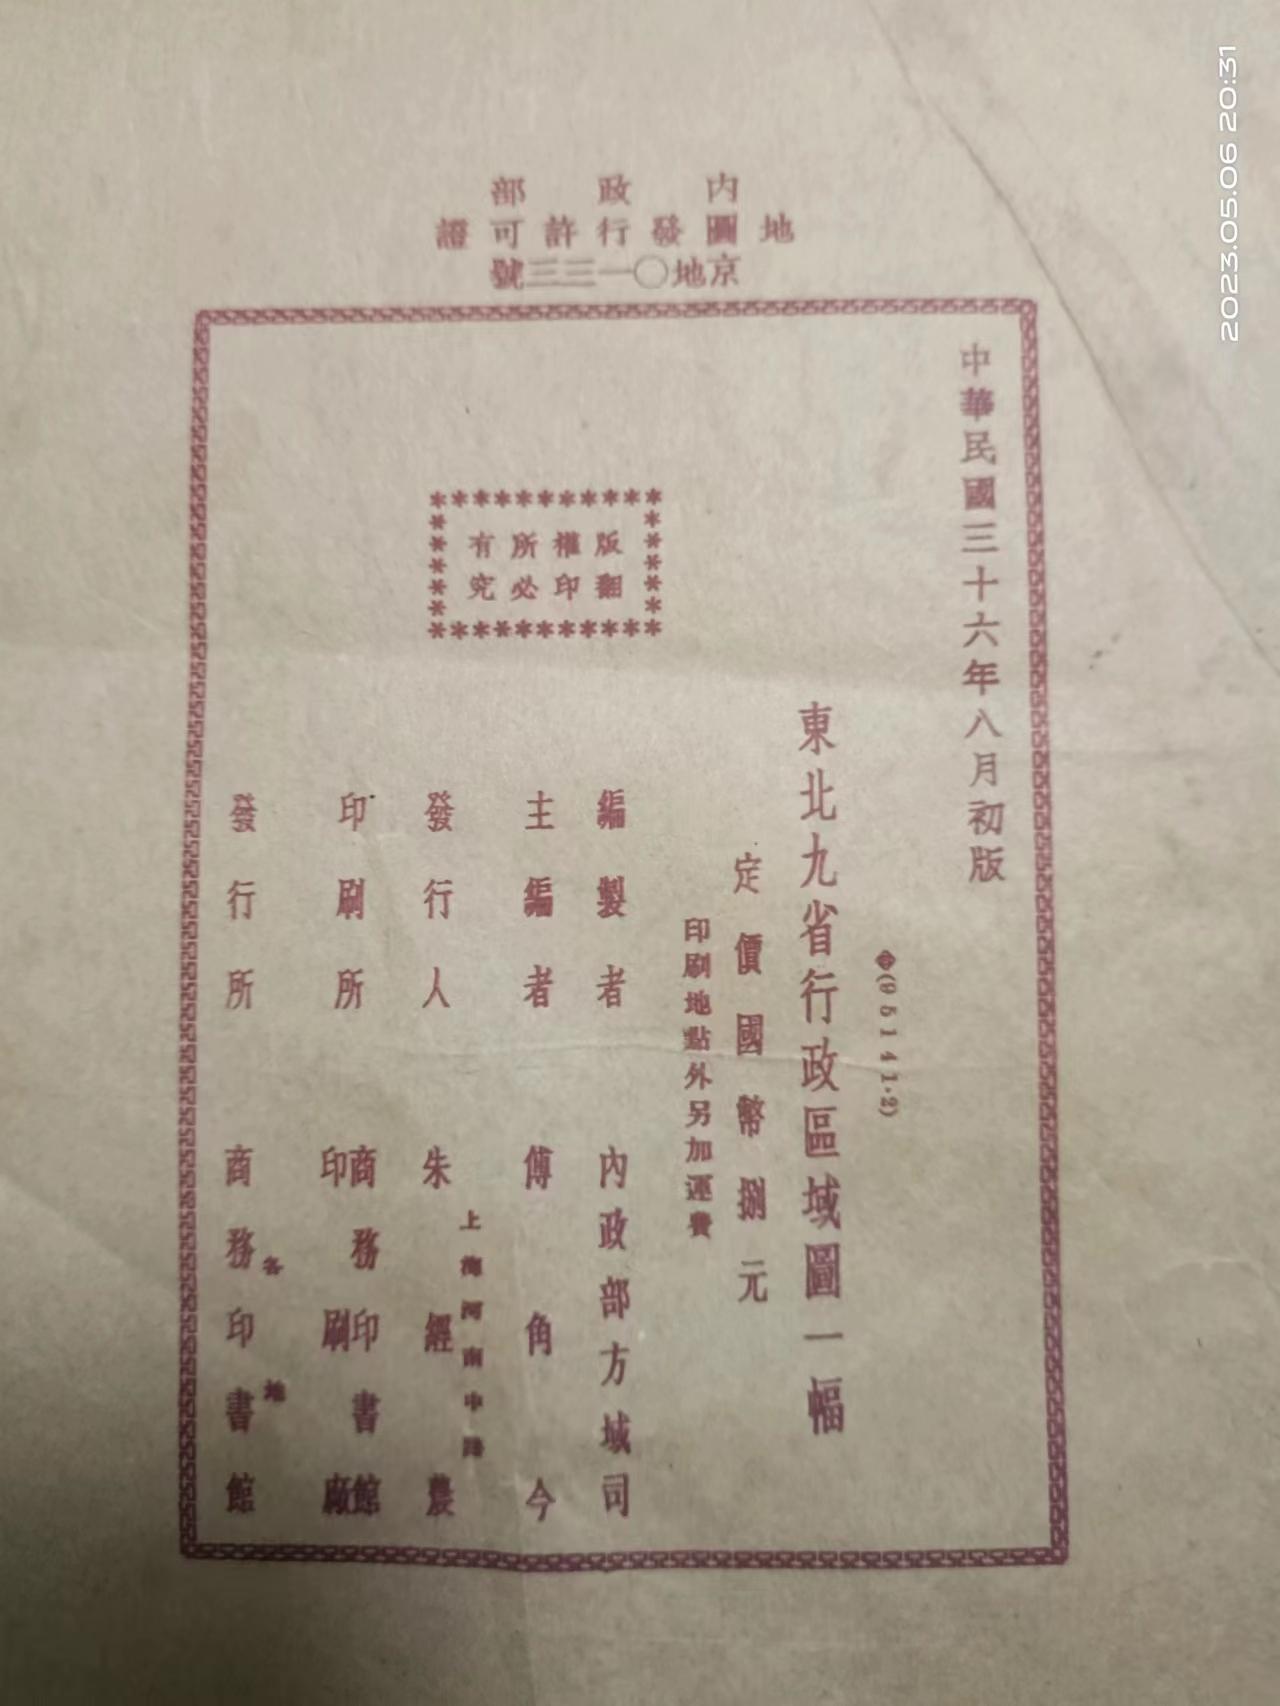 內政部
地圖發行許可證
京地〇一三三號
中華民國三十六年八月初版
(95141·2)
東北九省行政區域圖一幅
定價國幣捌元
印刷地點外另加運費
版權所有
翻印必究
編製者 內政部方域司
主編者 傅角今
上海河南中路
發行人 朱經農
印刷所 商務印書館
印刷廠
各地
發行所 商務印書館
2023.05.06 20:31